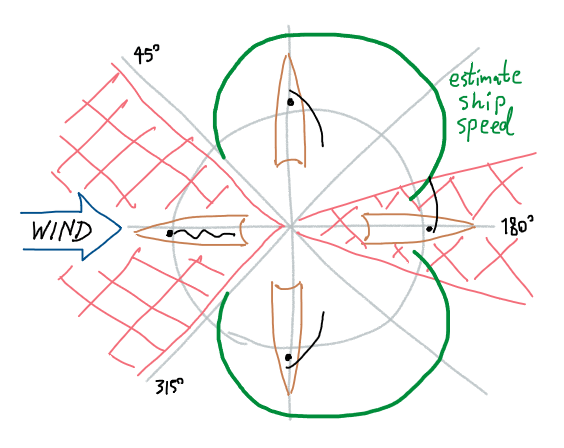 45°
estimate
ship
speed
WIND
180°
315°